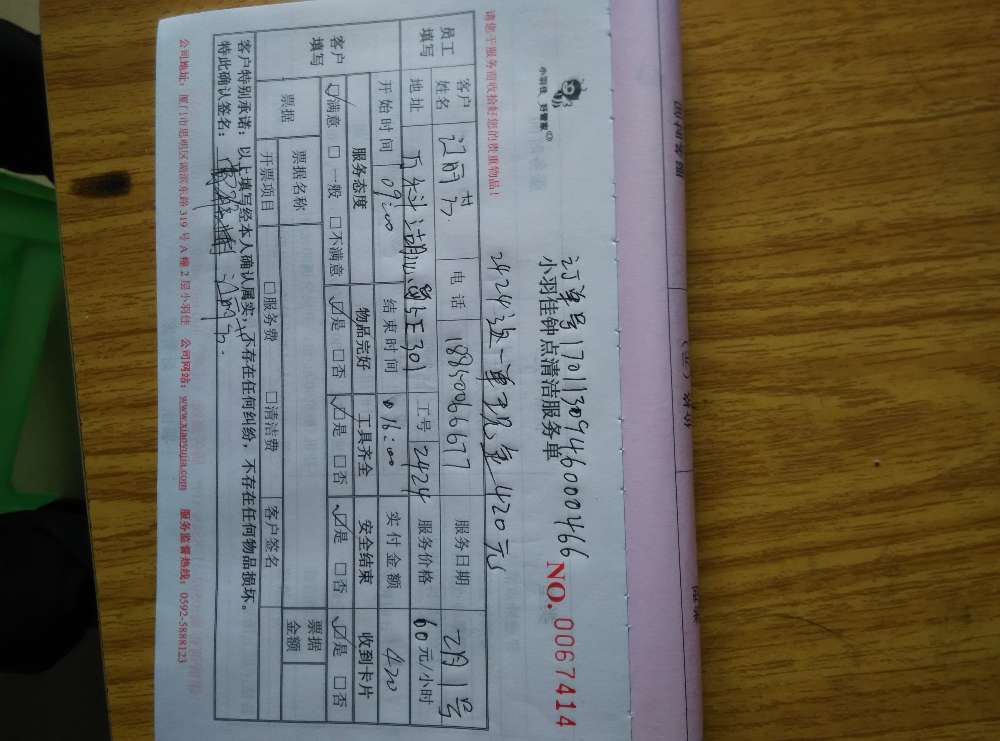 小羽佳 好管家
订单号17011309460000466
小羽佳钟点清洁服务单
NO. 0067414
2424这一单现金420元
请您于服务前收拾好您的贵重物品!
员工填写
客户姓名 江丽芳 电话 18850066677 服务日期 2月1号
地址 万科湖心岛 301 工号 2424 服务价格 60元/小时
客户填写
开始时间 09:00 结束时间 16:00 实付金额 420
服务态度 物品完好 工具齐全 安全结束 收到卡片
☑满意 □一般 □不满意 ☑是 □否 ☑是 □否 ☑是 □否 ☑是 □否
票据 票据名称 票据金额
开票项目 □服务费 □清洁费 客户签名
客户特别承诺:以上填写经本人确认属实,不存在任何纠纷,不存在任何物品损坏。
特此确认签名: 江丽芳
公司地址:厦门市思明区湖滨东路319号A幢2层小羽佳 公司网站:www.xiaoyujia.com 服务监督热线:0592-5888123